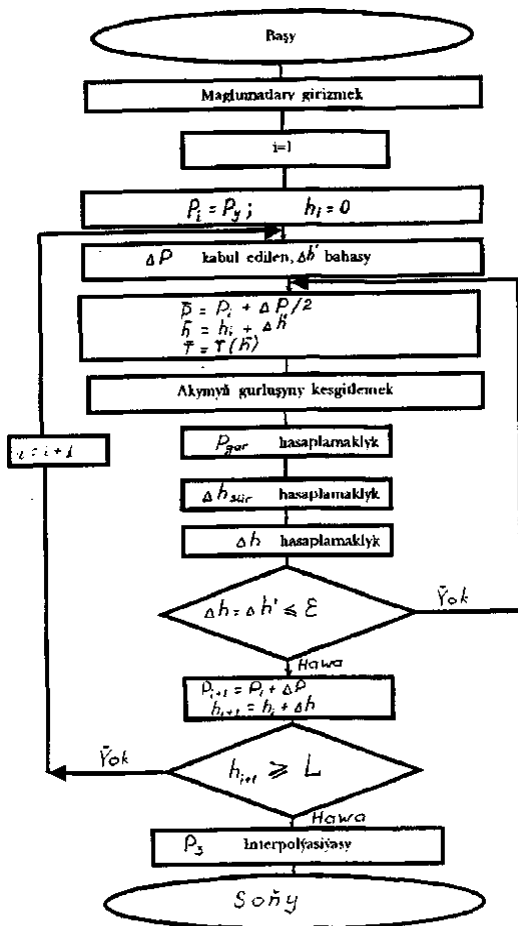 Başy
Maglumatlary girizmek
i=1
P_i = P_y; h_i = 0
ΔP kabul edilen, Δh' bahasy
p̄ = P_i + ΔP/2
h̄ = h_i + Δh'
T̄ = T(h̄)
Akymyň gurluşyny kesgitlemek
i=i+1
P_gar hasaplamaklyk
Δh_sür hasaplamaklyk
Δh hasaplamaklyk
Δh = Δh' ≤ ε
Ýok
Hawa
P_{i+1} = P_i + ΔP
h_{i+1} = h_i + Δh
Ýok
h_{i+1} ⩾ L
Hawa
P_3 Interpolýasiýasy
Soňy